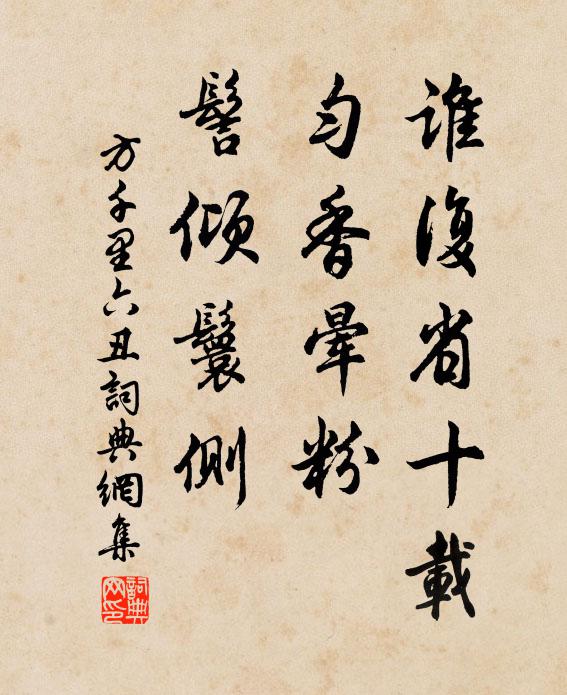 誰復省十載
匀香暈粉
髻傾鬟側
方千里六丑詞典網集
詞典网印